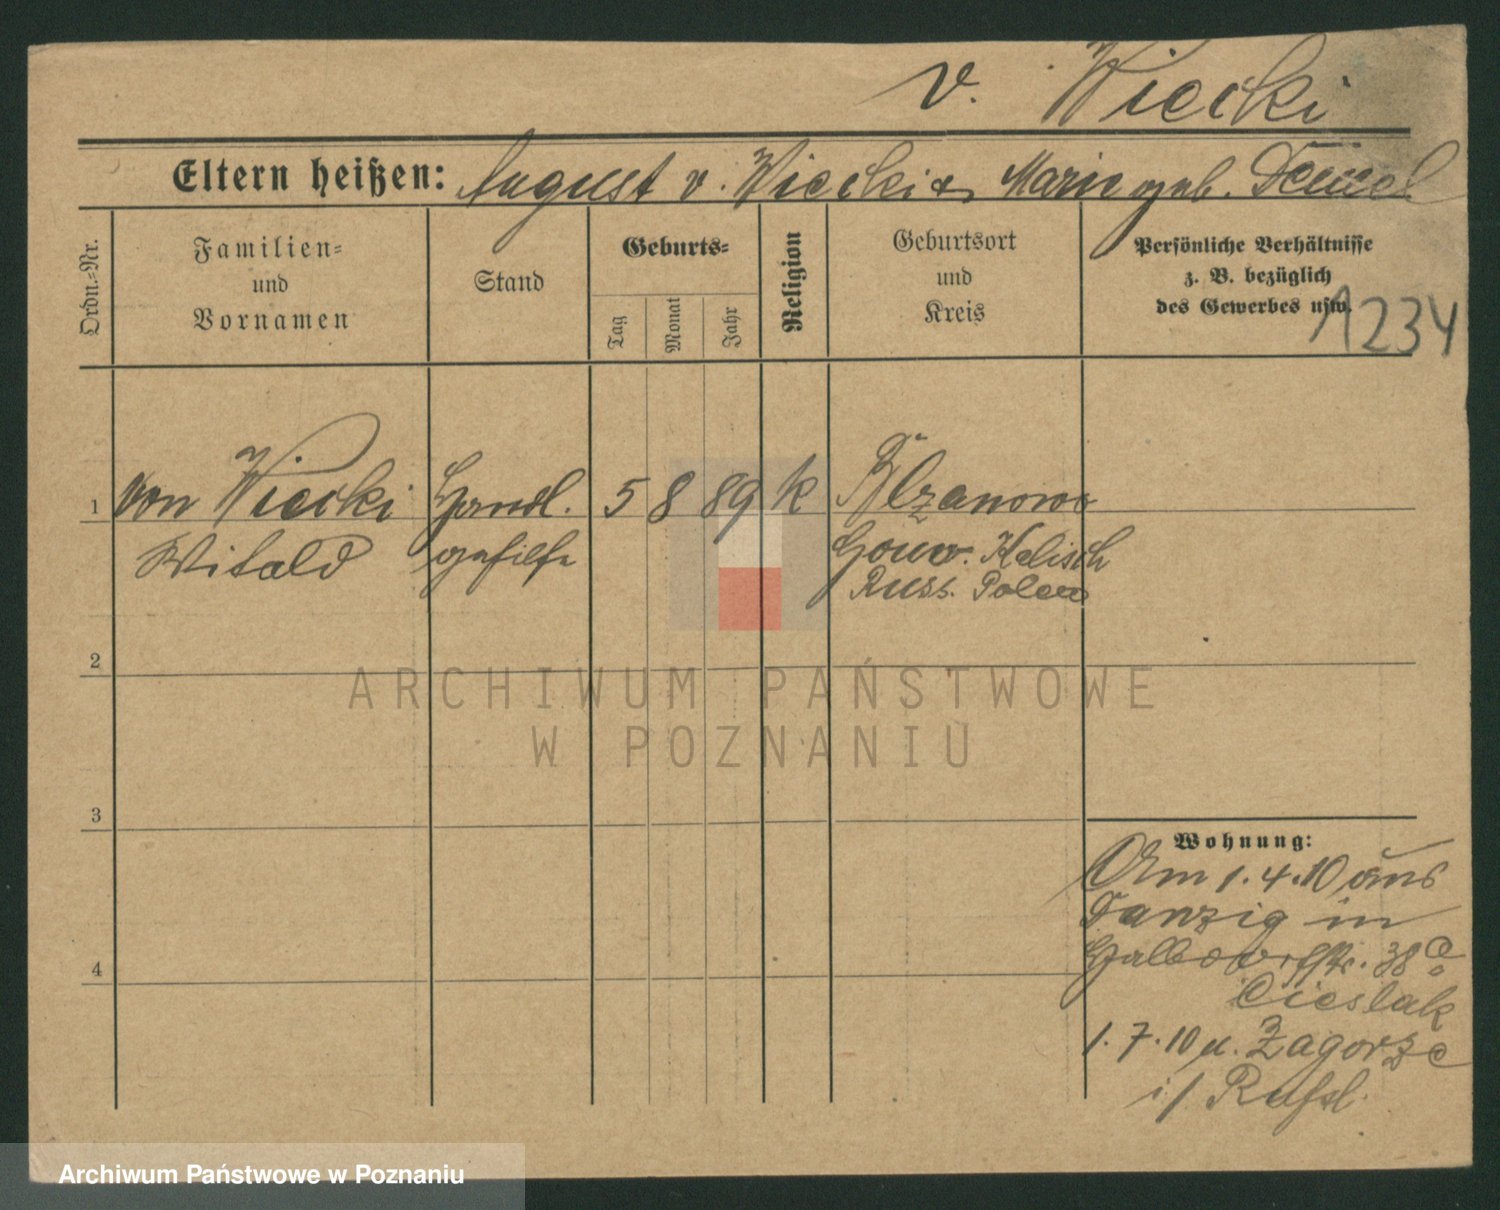 v. Wiecki
Eltern heißen: August v. Wiecki & Marie geb.
Ordn.-Nr.
Familien-
und
Vornamen
Stand
Geburts-
Tag
Monat
Jahr
Religion
Geburtsort
und
Kreis
Persönliche Verhältnisse
z. B. bezüglich
des Gewerbes usw.
1234
1 von Wiecki Handl. 5 8 89 k
Witald gehilfe Gouv. Kalisch
Russ. Polen
2
ARCHIWUM PAŃSTWOWE
W POZNANIU
3
Wohnung:
Am 1.4.10 aus
Danzig in
Halbdorfstr. 38
Cieslak
1.7.10 n. Zagorze
i/ Rußl.
4
Archiwum Państwowe w Poznaniu